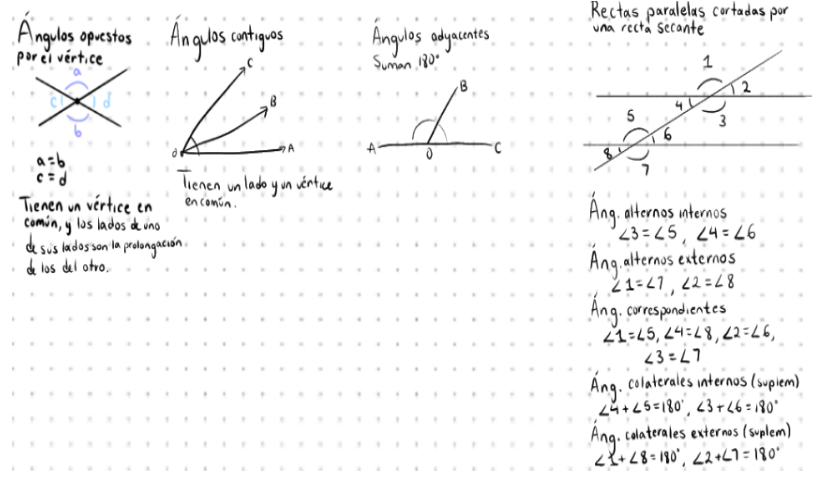 Ángulos opuestos
por el vértice
a
c
d
b
a=b
c=d
Tienen un vértice en
común, y los lados de uno
de sus lados son la prolongación
de los del otro.
Ángulos contiguos
C
B
A
O
Tienen un lado y un vértice
en común.
Ángulos adyacentes
Suman 180°
B
A
O
C
Rectas paralelas cortadas por
una recta secante
1
2
4
3
5
6
8
7
Áng. alternos internos
∠3=∠5, ∠4=∠6
Áng. alternos externos
∠1=∠7, ∠2=∠8
Áng. correspondientes
∠1=∠5, ∠4=∠8, ∠2=∠6,
∠3=∠7
Áng. colaterales internos (suplem)
∠4+∠5=180°, ∠3+∠6=180°
Áng. colaterales externos (suplem)
∠1+∠8=180°, ∠2+∠7=180°